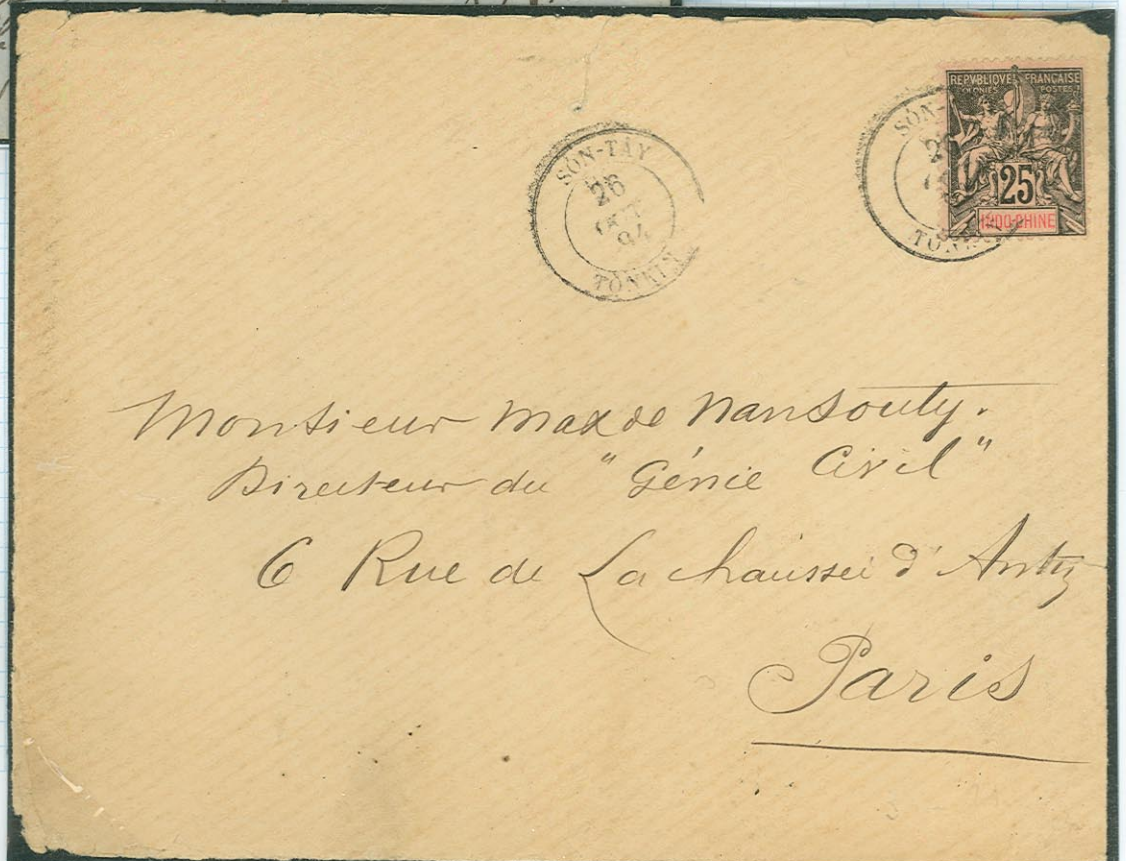 SON-TAY
26
OCT
94
TONKIN
REPVBLIQVE FRANÇAISE
COLONIES POSTES
25
INDO-CHINE
SON-
26
TONK
Monsieur Max de Nansouty.
Directeur du "Génie Civil"
6 Rue de La chaussée d'Antin
Paris